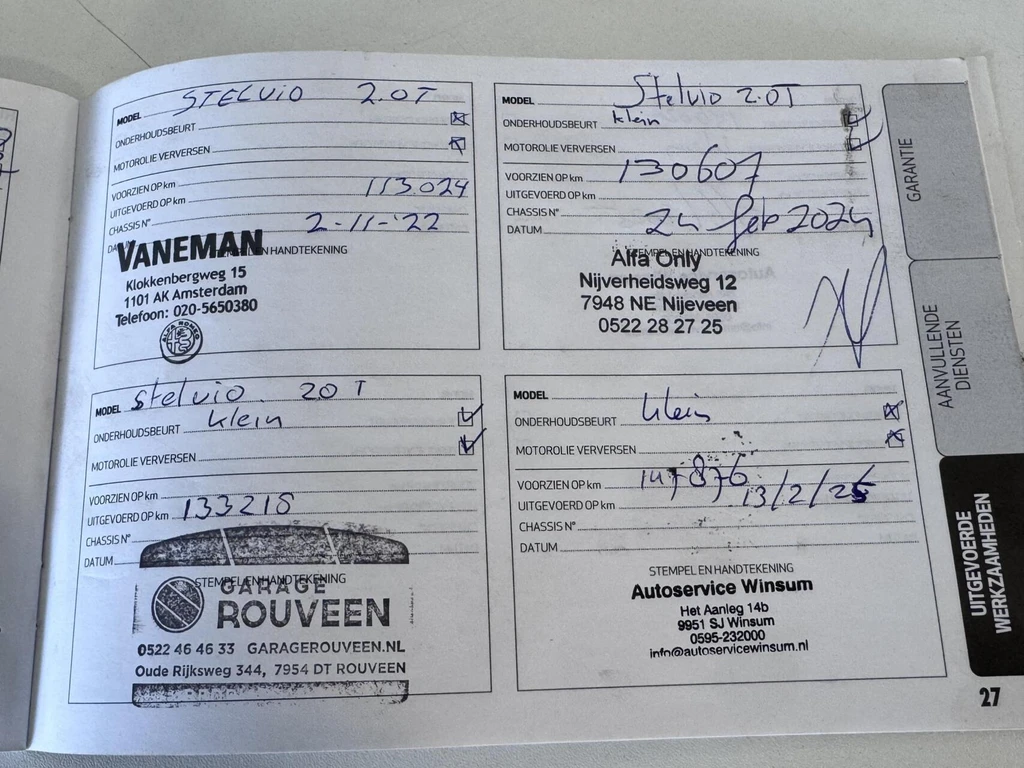 MODEL STELVIO 2.0T
ONDERHOUDSBEURT
MOTOROLIE VERVERSEN
VOORZIEN OP km
UITGEVOERD OP km 113.024
CHASSIS N° 2-11-'22
STEMPEL EN HANDTEKENING
VANEMAN
Klokkenbergweg 15
1101 AK Amsterdam
Telefoon: 020-5650380
ALFA ROMEO
MODEL Stelvio 2.0T
ONDERHOUDSBEURT klein
MOTOROLIE VERVERSEN
VOORZIEN OP km 130607
UITGEVOERD OP km
CHASSIS N°
DATUM 24 feb 2024
STEMPEL EN HANDTEKENING
Alfa Only
Nijverheidsweg 12
7948 NE Nijeveen
0522 28 27 25
MODEL Stelvio 20 T
ONDERHOUDSBEURT klein
MOTOROLIE VERVERSEN
VOORZIEN OP km
UITGEVOERD OP km 133218
CHASSIS N°
DATUM
STEMPEL EN HANDTEKENING
GARAGE
ROUVEEN
0522 46 46 33 GARAGEROUVEEN.NL
Oude Rijksweg 344, 7954 DT ROUVEEN
MODEL
ONDERHOUDSBEURT klein
MOTOROLIE VERVERSEN
VOORZIEN OP km 147876
UITGEVOERD OP km 13/2/25
CHASSIS N°
DATUM
STEMPEL EN HANDTEKENING
Autoservice Winsum
Het Aanleg 14b
9951 SJ Winsum
0595-232000
info@autoservicewinsum.nl
GARANTIE
AANVULLENDE
DIENSTEN
UITGEVOERDE
WERKZAAMHEDEN
27